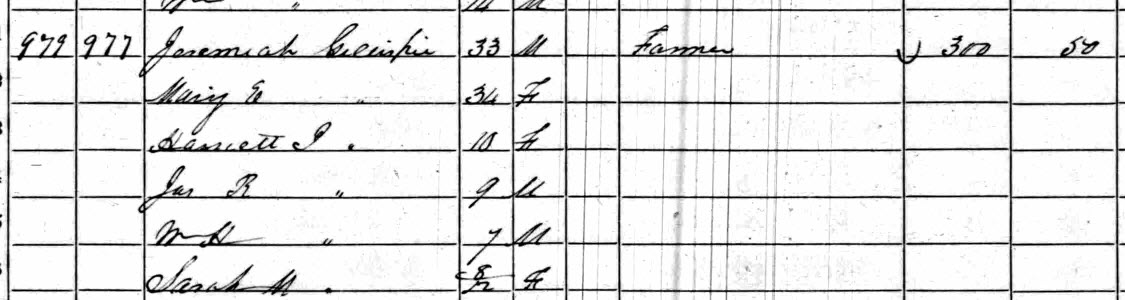 14 M
979 977 Jeremiah Gillispie 33 M Farmer 300 50
Mary E " 34 F
Harriett J " 10 F
Jas R " 9 M
Wm H " 7 M
Sarah M " 8/12 F